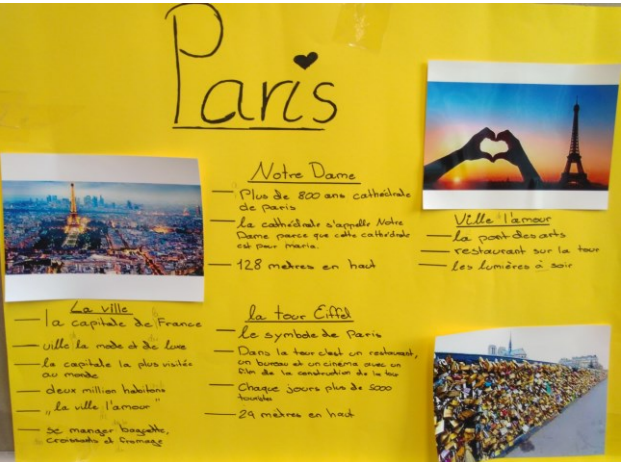 Paris
Notre Dame
— Plus de 800 ans cathédrale
de paris
— la cathédrale s'appelle Notre
Dame parce que cette cathédrale
est pour maria.
— 128 metres en haut
Ville l'amour
— la pont des arts
— restaurant sur la tour
— les lumières à soir
La ville
— la capitale de France
— ville la mode et de luxe
— la capitale la plus visitée
au monde
— deux million habitons
— „la ville l'amour"
— se manger baguette,
croissants et fromage
la tour Eiffel
— le symbole de Paris
— Dans la tour c'est un restaurant,
un bureau et un cinéma avec un
film de la construction de la tour
— Chaque jours plus de 5000
tourists
— 29 metres en haut